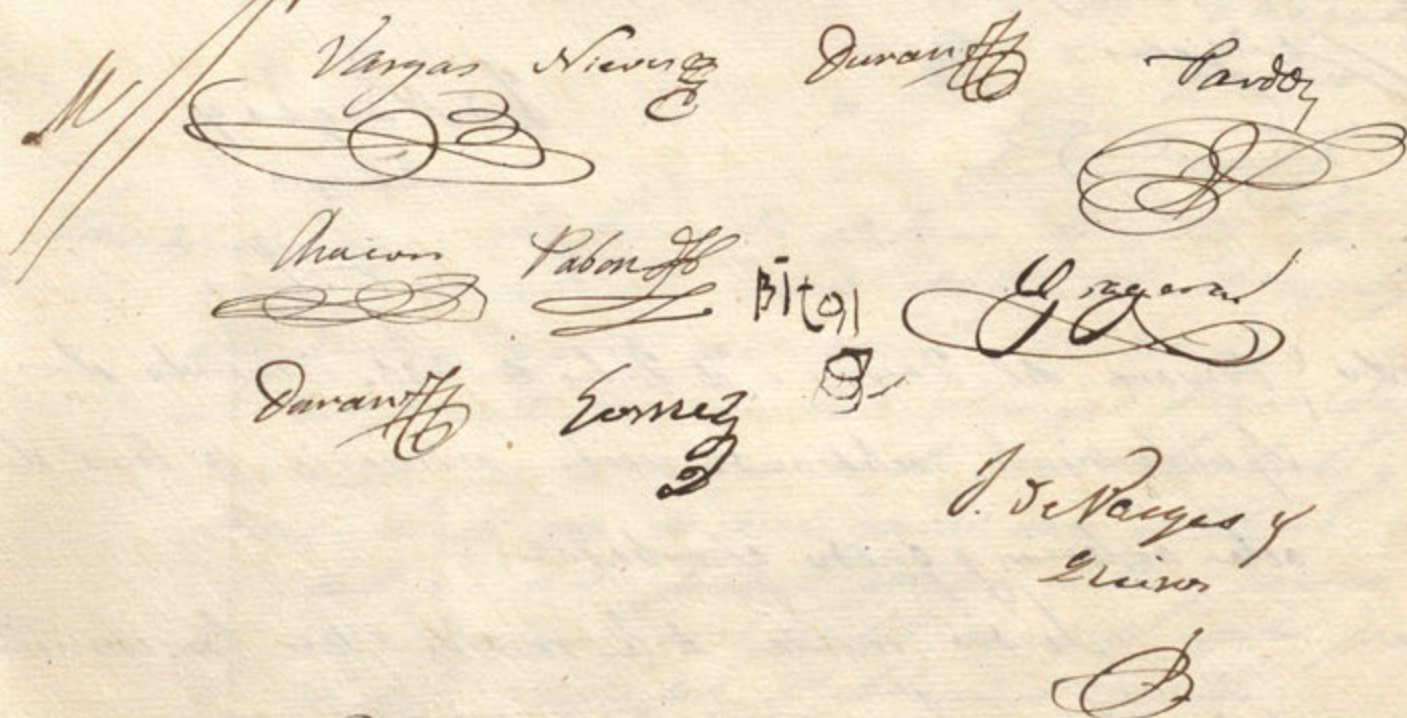 Vargas Nieves Duran Pardo
Chacon Pabon Bital Grageras
Duran Gomez
J. de Vargas y
Quiros